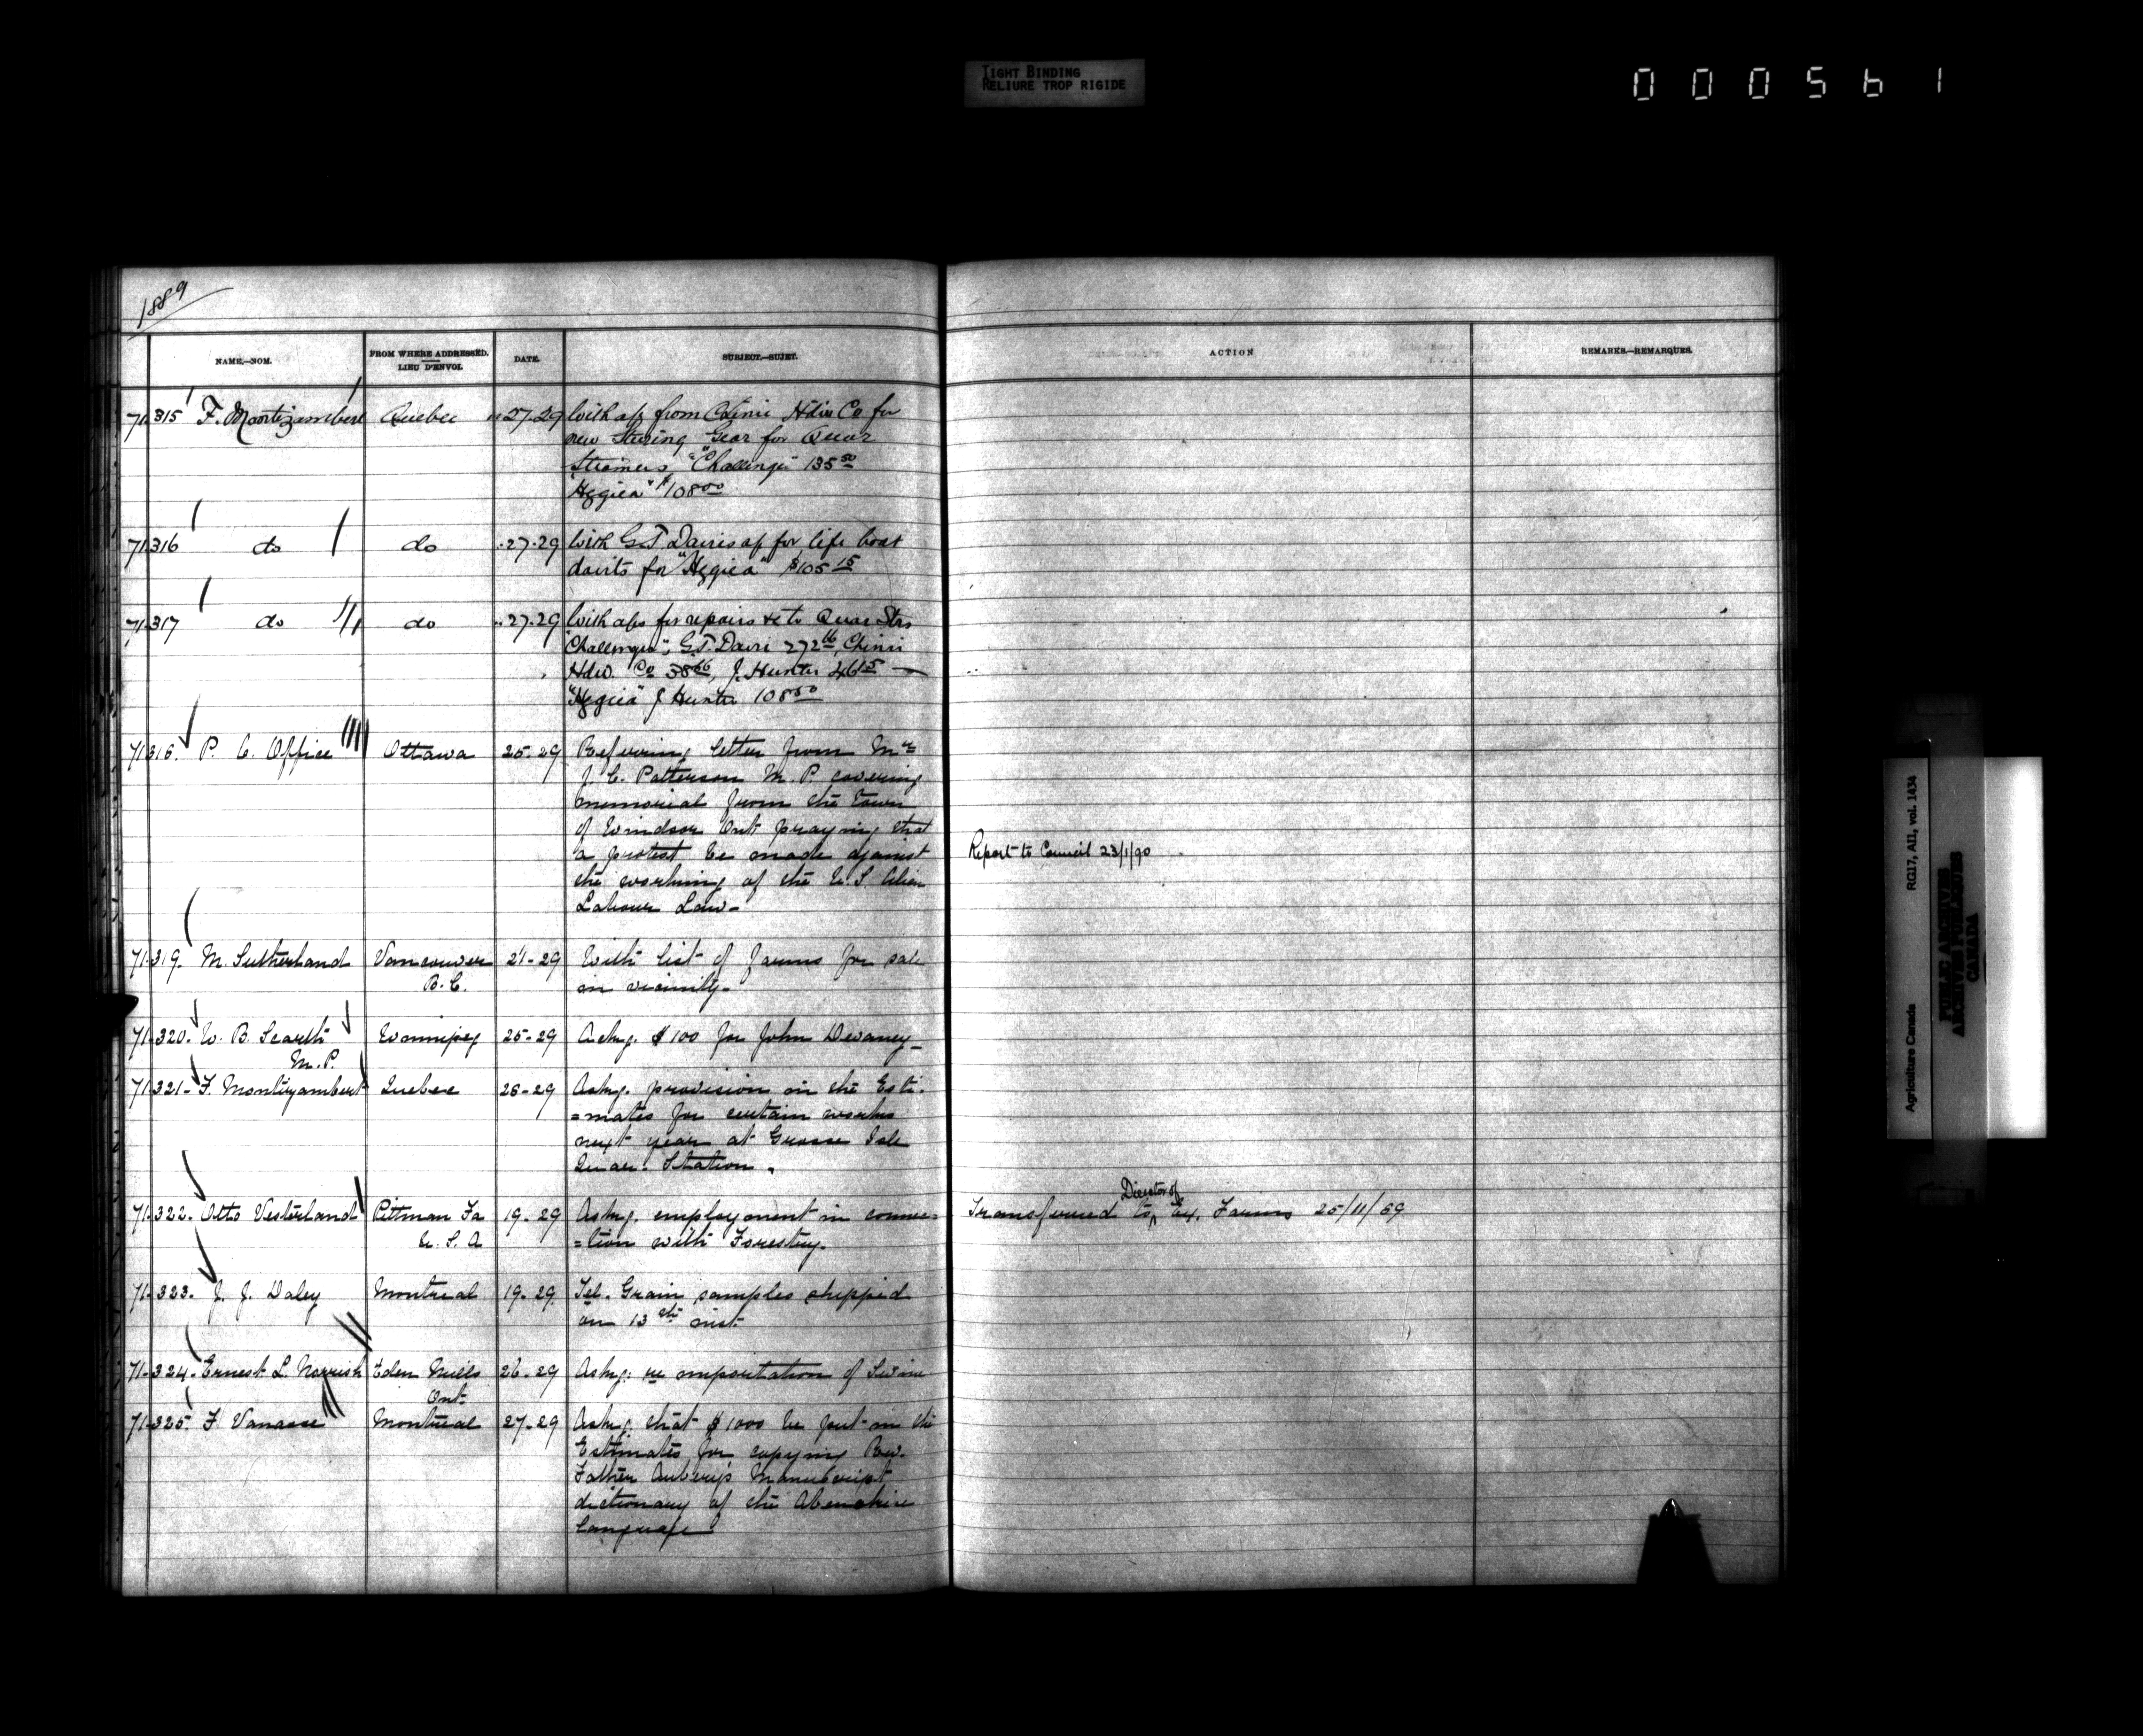 TIGHT BINDING
RELIURE TROP RIGIDE
000561
1889
NAME.—NOM.
FROM WHERE ADDRESSED.
LIEU D'ENVOI.
DATE.
SUBJECT.—SUJET.
ACTION
REMARKS.—REMARQUES.
71.315 F. Montizambert Quebec 27-29 With a/c from Chinic Hdw Co for
new Steering Gear for Quar
Steamers, "Challenger" 135 50
"Hygiea" $108 00
71.316 do do 27-29 With G.T. Davies a/c for life boat
davits for "Hygiea" $105 15
71.317 do do 27-29 With a/cs for repairs &c to Quar Strs
"Challenger", G.T. Davie 272 16, Chinic
Hdw. Co 38 66, J. Hunter 46 15 —
"Hygiea" J Hunter 108 50
71.318. P. C. Office Ottawa 25-29 Referring letter from Mr
J. C. Patterson M.P. covering
memorial from the town
of Windsor Ont praying that
a protest be made against
the working of the U.S. Alien
Labour Law-
Report to Council 23/1/90
71.319. M. Sutherland Vancouver 21-29 With list of farms for sale
B.C. in vicinity-
71.320. W. B. Scarth Winnipeg 25-29 Askg. $100 for John Devaney-
M.P.
71.321- F. Montizambert Quebec 28-29 Askg. provision in the Esti-
=mates for certain works
next year at Grosse Isle
Quar. Station.
71.322. Otto Vesterland Pittman Fa 19-29 Askg. employment in connec=
U.S.A =tion with Forestry.
Transferred to Director of Ex. Farms 25/11/89
71.323. J. J. Daley Montreal 19-29 Tel. Grain samples shipped
on 13th inst
71-324. Ernest L. Norrish Eden Mills 26-29 Askg: re importation of Swine
Ont.
71-325. F. Vanasse Montreal 27-29 Askg. that $1000 be put in the
Estimates for copying Rev.
Father Aubery's Manuscript
dictionary of the Abenakise
Language
Agriculture Canada RG17, AII, vol. 1434
PUBLIC ARCHIVES
ARCHIVES PUBLIQUES
CANADA